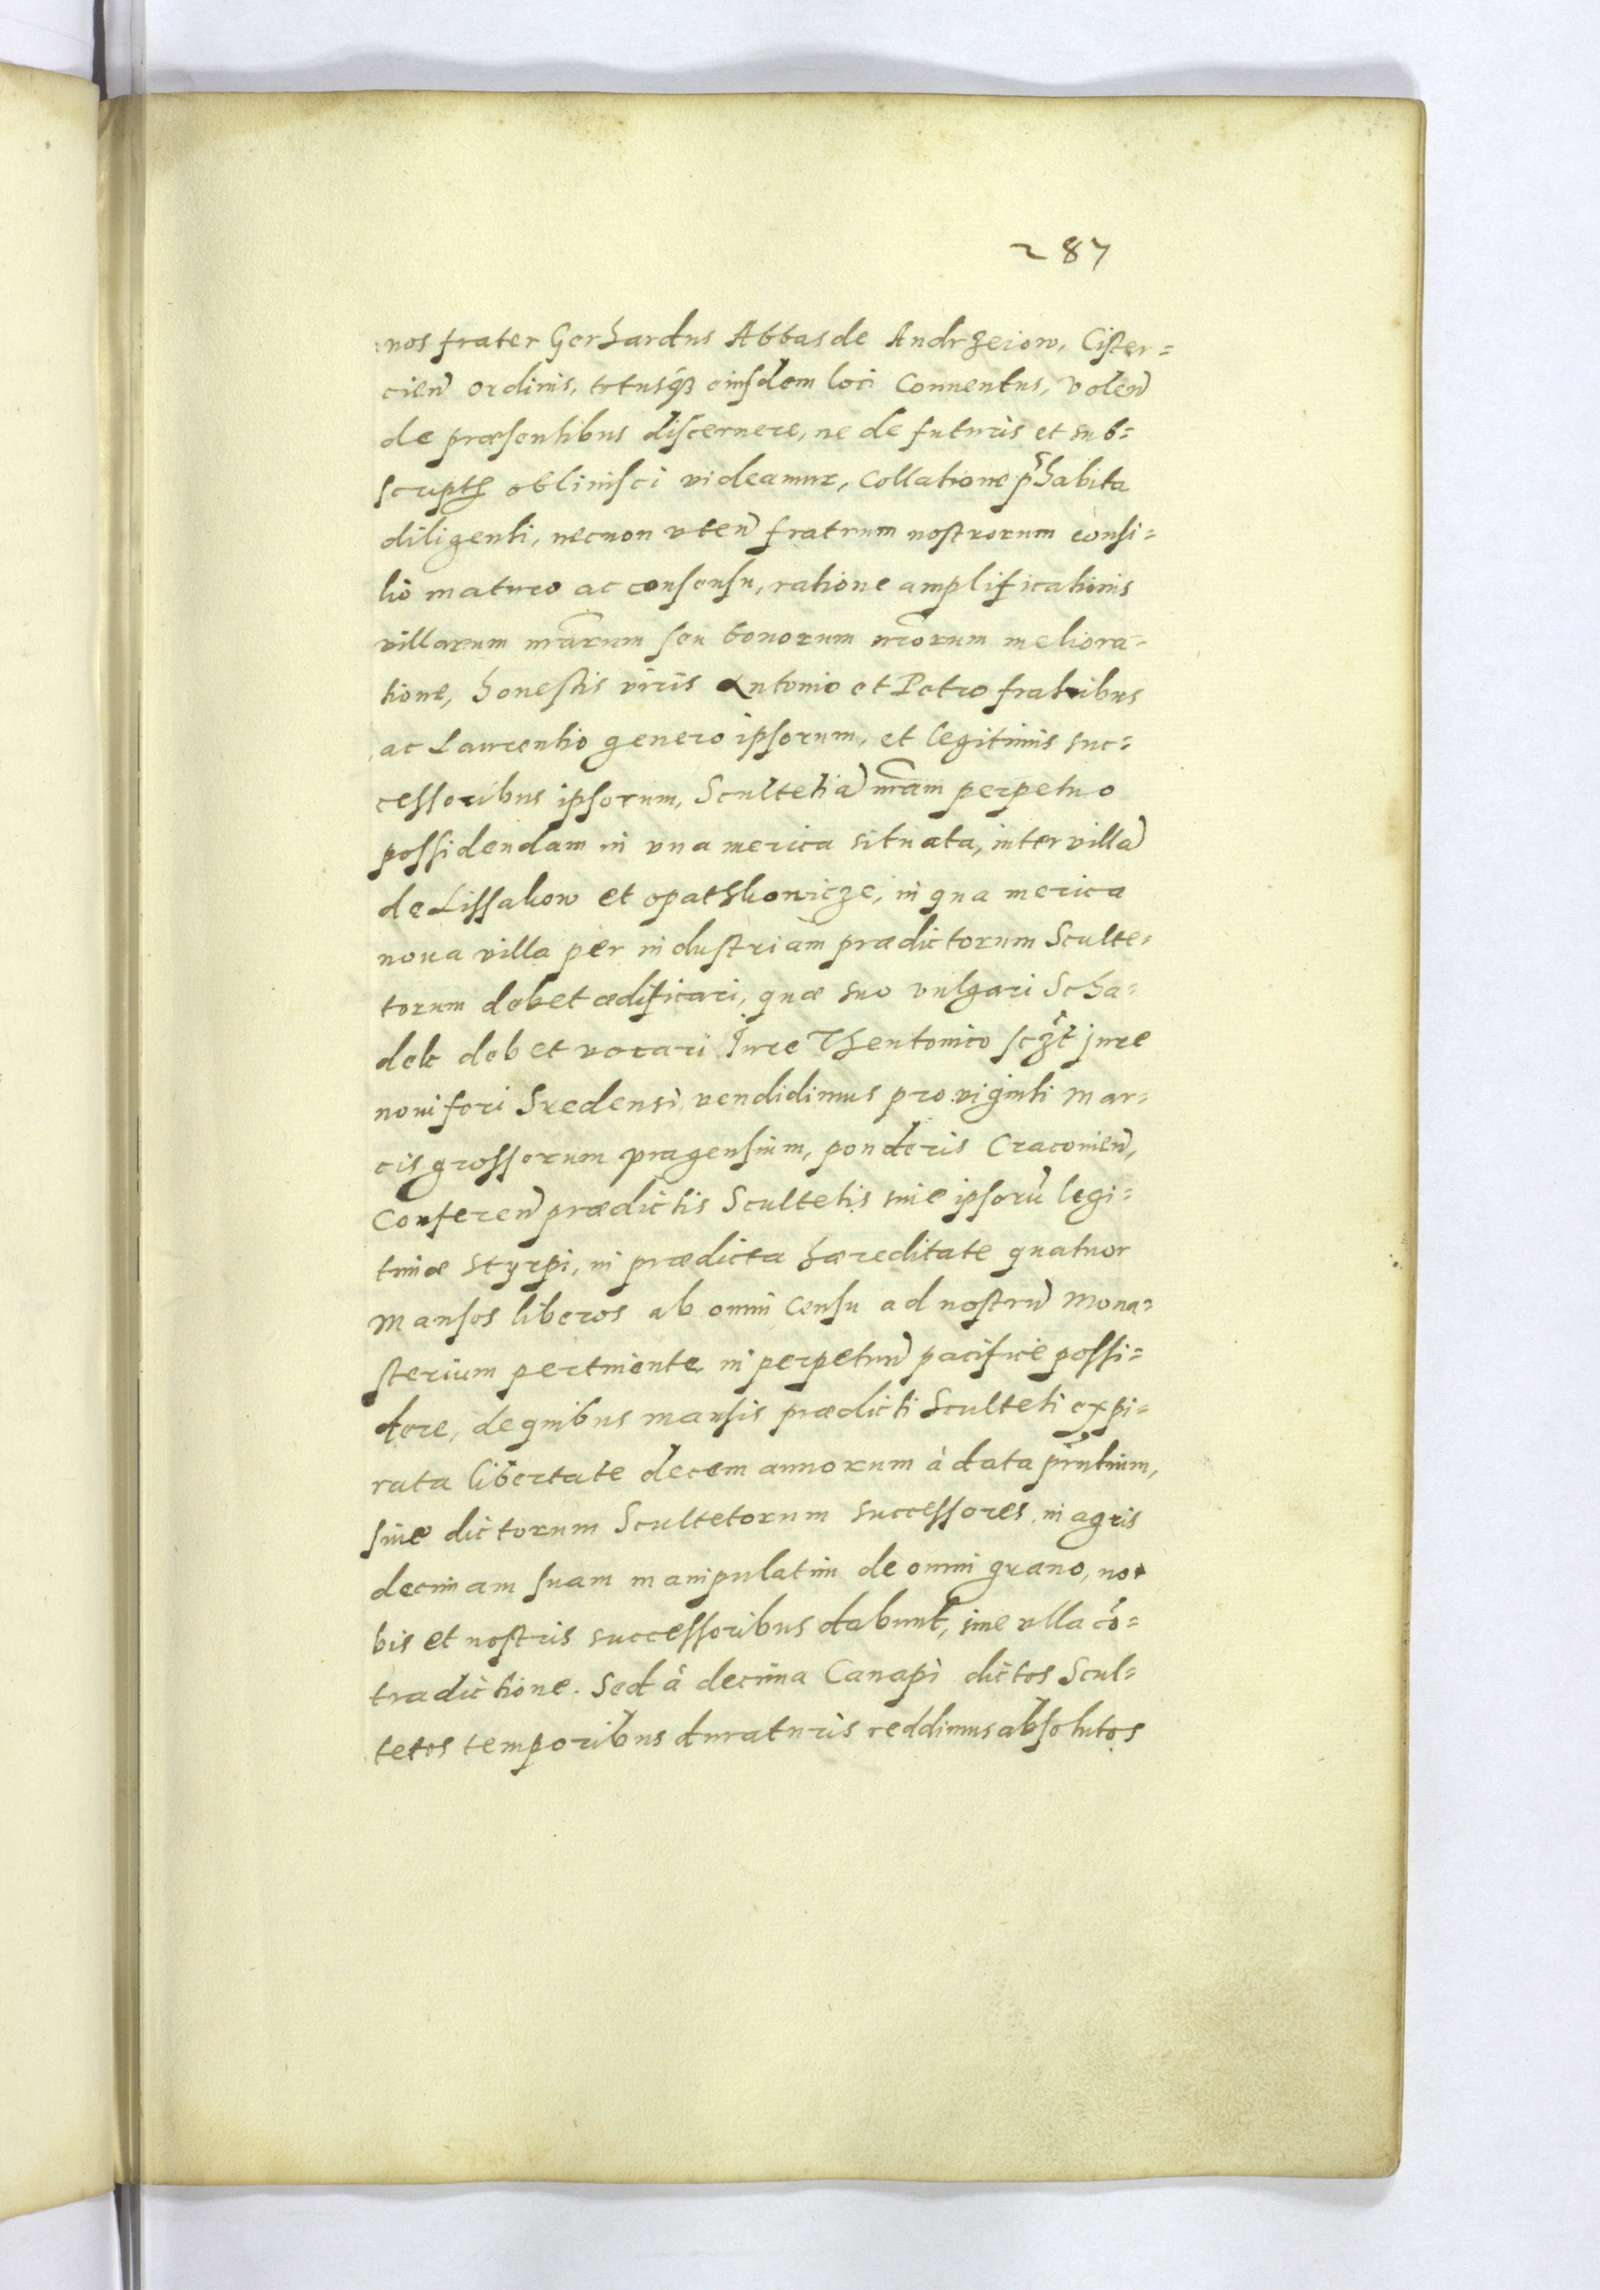 287
nos frater Gerhardus Abbas de Andrzeiow, Cister=
cien͂ Ordinis, totusq́ꝫ eiusdem loci Conuentus, volen͂
de præsentibus discernere, ne de futuris et sub=
scriptis obliuisci videamur, Collatione p̃habita
diligenti, necnon vten͂ fratrum nostrorum consi=
lio maturo ac consensu, ratione amplificationis
villarum nr̃arum seu bonorum nr̃orum meliora-
tione, honestis viris Antonio et Petro fratribus
ac Laurentio genero ipsorum, et legitimis suc=
cessoribus ipsorum, Scultetiã nr̃am perpetuo
possidendam in vna merica situata, inter villã
de Lissakow et opathkowicze, in qua merica
noua villa per industriam prædictorum Sculte=
torum debet ædificari, quæ suo vulgari Scha=
dek debet vocari Jure Theutonico scꝫt jure
noui fori Sredensi, vendidimus pro viginti Mar=
cis grossorum pragensium, ponderis Cracouien͂,
Conferen͂ prædictis Scultetis siue ipsorũ legi=
timæ styrpi, in prædicta hæreditate quatuor
Mansos liberos ab omni Censu ad nostrũ Mona=
sterium pertinente in perpetuũ pacifice possi=
dere, de quibus mansis prædicti Sculteti expi=
rata libertate decem annorum à data pñtium,
siue dictorum Scultetorum successores, in agris
decimam suam manipulatim de omni grano, no
bis et nostris successoribus dabunt, sine vlla cõ=
tradictione. Sed à decima Canapi dictos Scul=
tetos temporibus duraturis reddimus absolutos